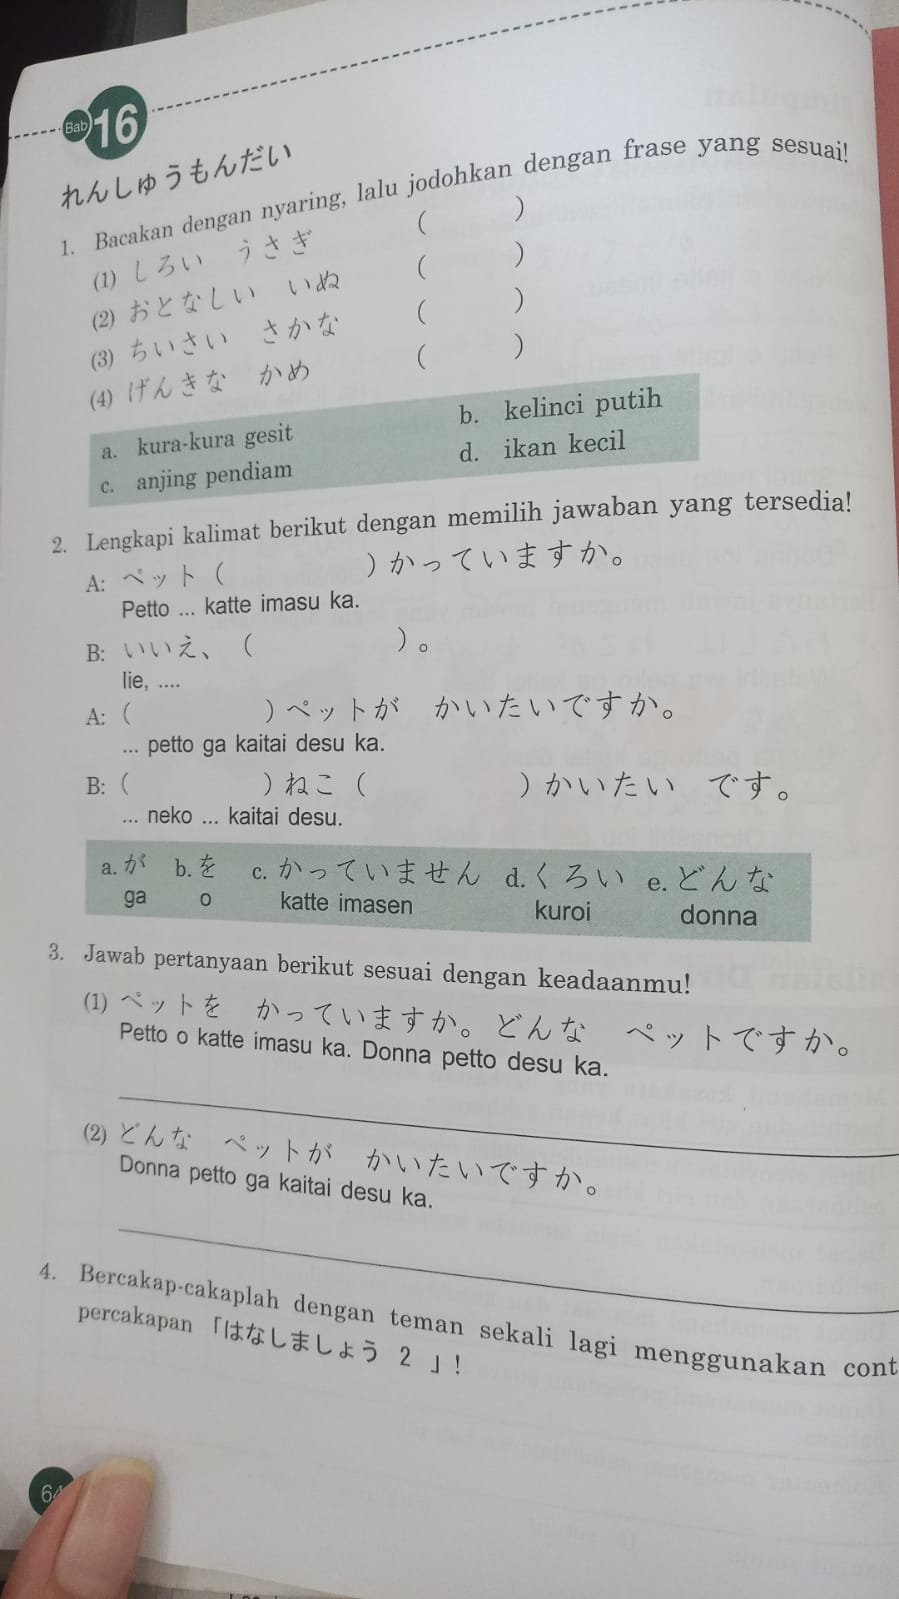 Bab 16
れんしゅうもんだい
1. Bacakan dengan nyaring, lalu jodohkan dengan frase yang sesuai!
(1) しろい うさぎ ( )
(2) おとなしい いぬ ( )
(3) ちいさい さかな ( )
(4) げんきな かめ ( )
a. kura-kura gesit b. kelinci putih
c. anjing pendiam d. ikan kecil
2. Lengkapi kalimat berikut dengan memilih jawaban yang tersedia!
A: ペット ( ) かっていますか。
Petto ... katte imasu ka.
B: いいえ、 ( )。
Iie, ....
A: ( ) ペットが かいたいですか。
... petto ga kaitai desu ka.
B: ( ) ねこ ( ) かいたい です。
... neko ... kaitai desu.
a. が b. を c. かっていません d. くろい e. どんな
ga o katte imasen kuroi donna
3. Jawab pertanyaan berikut sesuai dengan keadaanmu!
(1) ペットを かっていますか。どんな ペットですか。
Petto o katte imasu ka. Donna petto desu ka.
(2) どんな ペットが かいたいですか。
Donna petto ga kaitai desu ka.
4. Bercakap-cakaplah dengan teman sekali lagi menggunakan
percakapan 「はなしましょう 2 」!